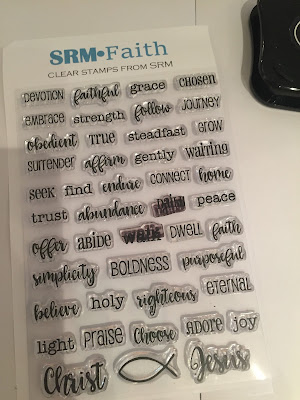 SRM•Faith
CLEAR STAMPS FROM SRM
DEVOTION faithful grace CHOSEN
EMBRACE strength follow JOURNEY
obedient TRUE steadfast GROW
SURRENDER affirm gently WAITING
SEEK find endure CONNECT home
trust abundance peace
offer ABIDE walk DWELL faith
simplicity BOLDNESS purposeful
believe holy righteous ETERNAL
light PRAISE Choose ADORE joy
Christ Jesus